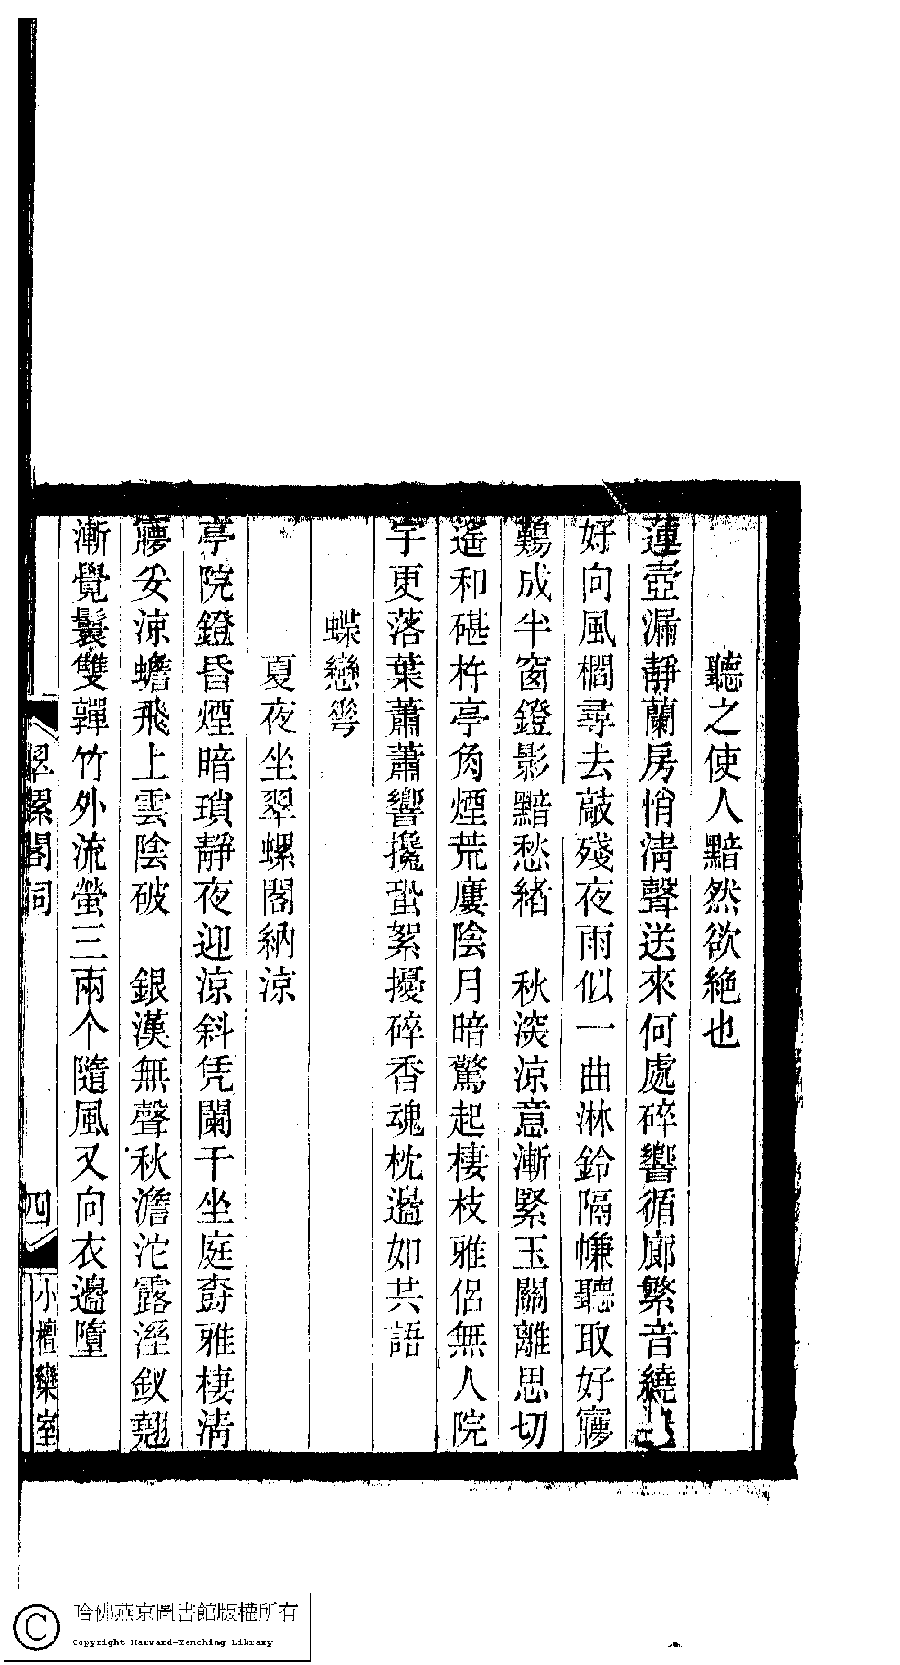 聽之使人黯然欲絶也
蓮壺漏靜蘭房悄淸聲送來何處碎響循廊繁音繞
好向風櫩尋去敲殘夜雨似一曲淋鈴隔㡘聽取好寱
鷄成半窗鐙影黯愁緒　秋深涼意漸緊玉關離思切
遙和碪杵亭角煙荒廔陰月暗驚起棲枝雅侶無人院
宇更落葉蕭蕭響攙蛩絮擾碎香魂枕邊如共語
蝶戀䔢
夏夜坐翠螺閣納涼
亭院鐙昏煙暗瑣靜夜迎涼斜凭闌干坐庭樹雅棲淸
寱安涼蟾飛上雲陰破　銀漢無聲秋澹沱露溼釵翹
漸覺鬟雙嚲竹外流螢三兩个隨風又向衣邊墮
翠螺閣詞
四
小檀欒室
哈佛燕京圖書館版權所有
Copyright Harvard-Yenching Library